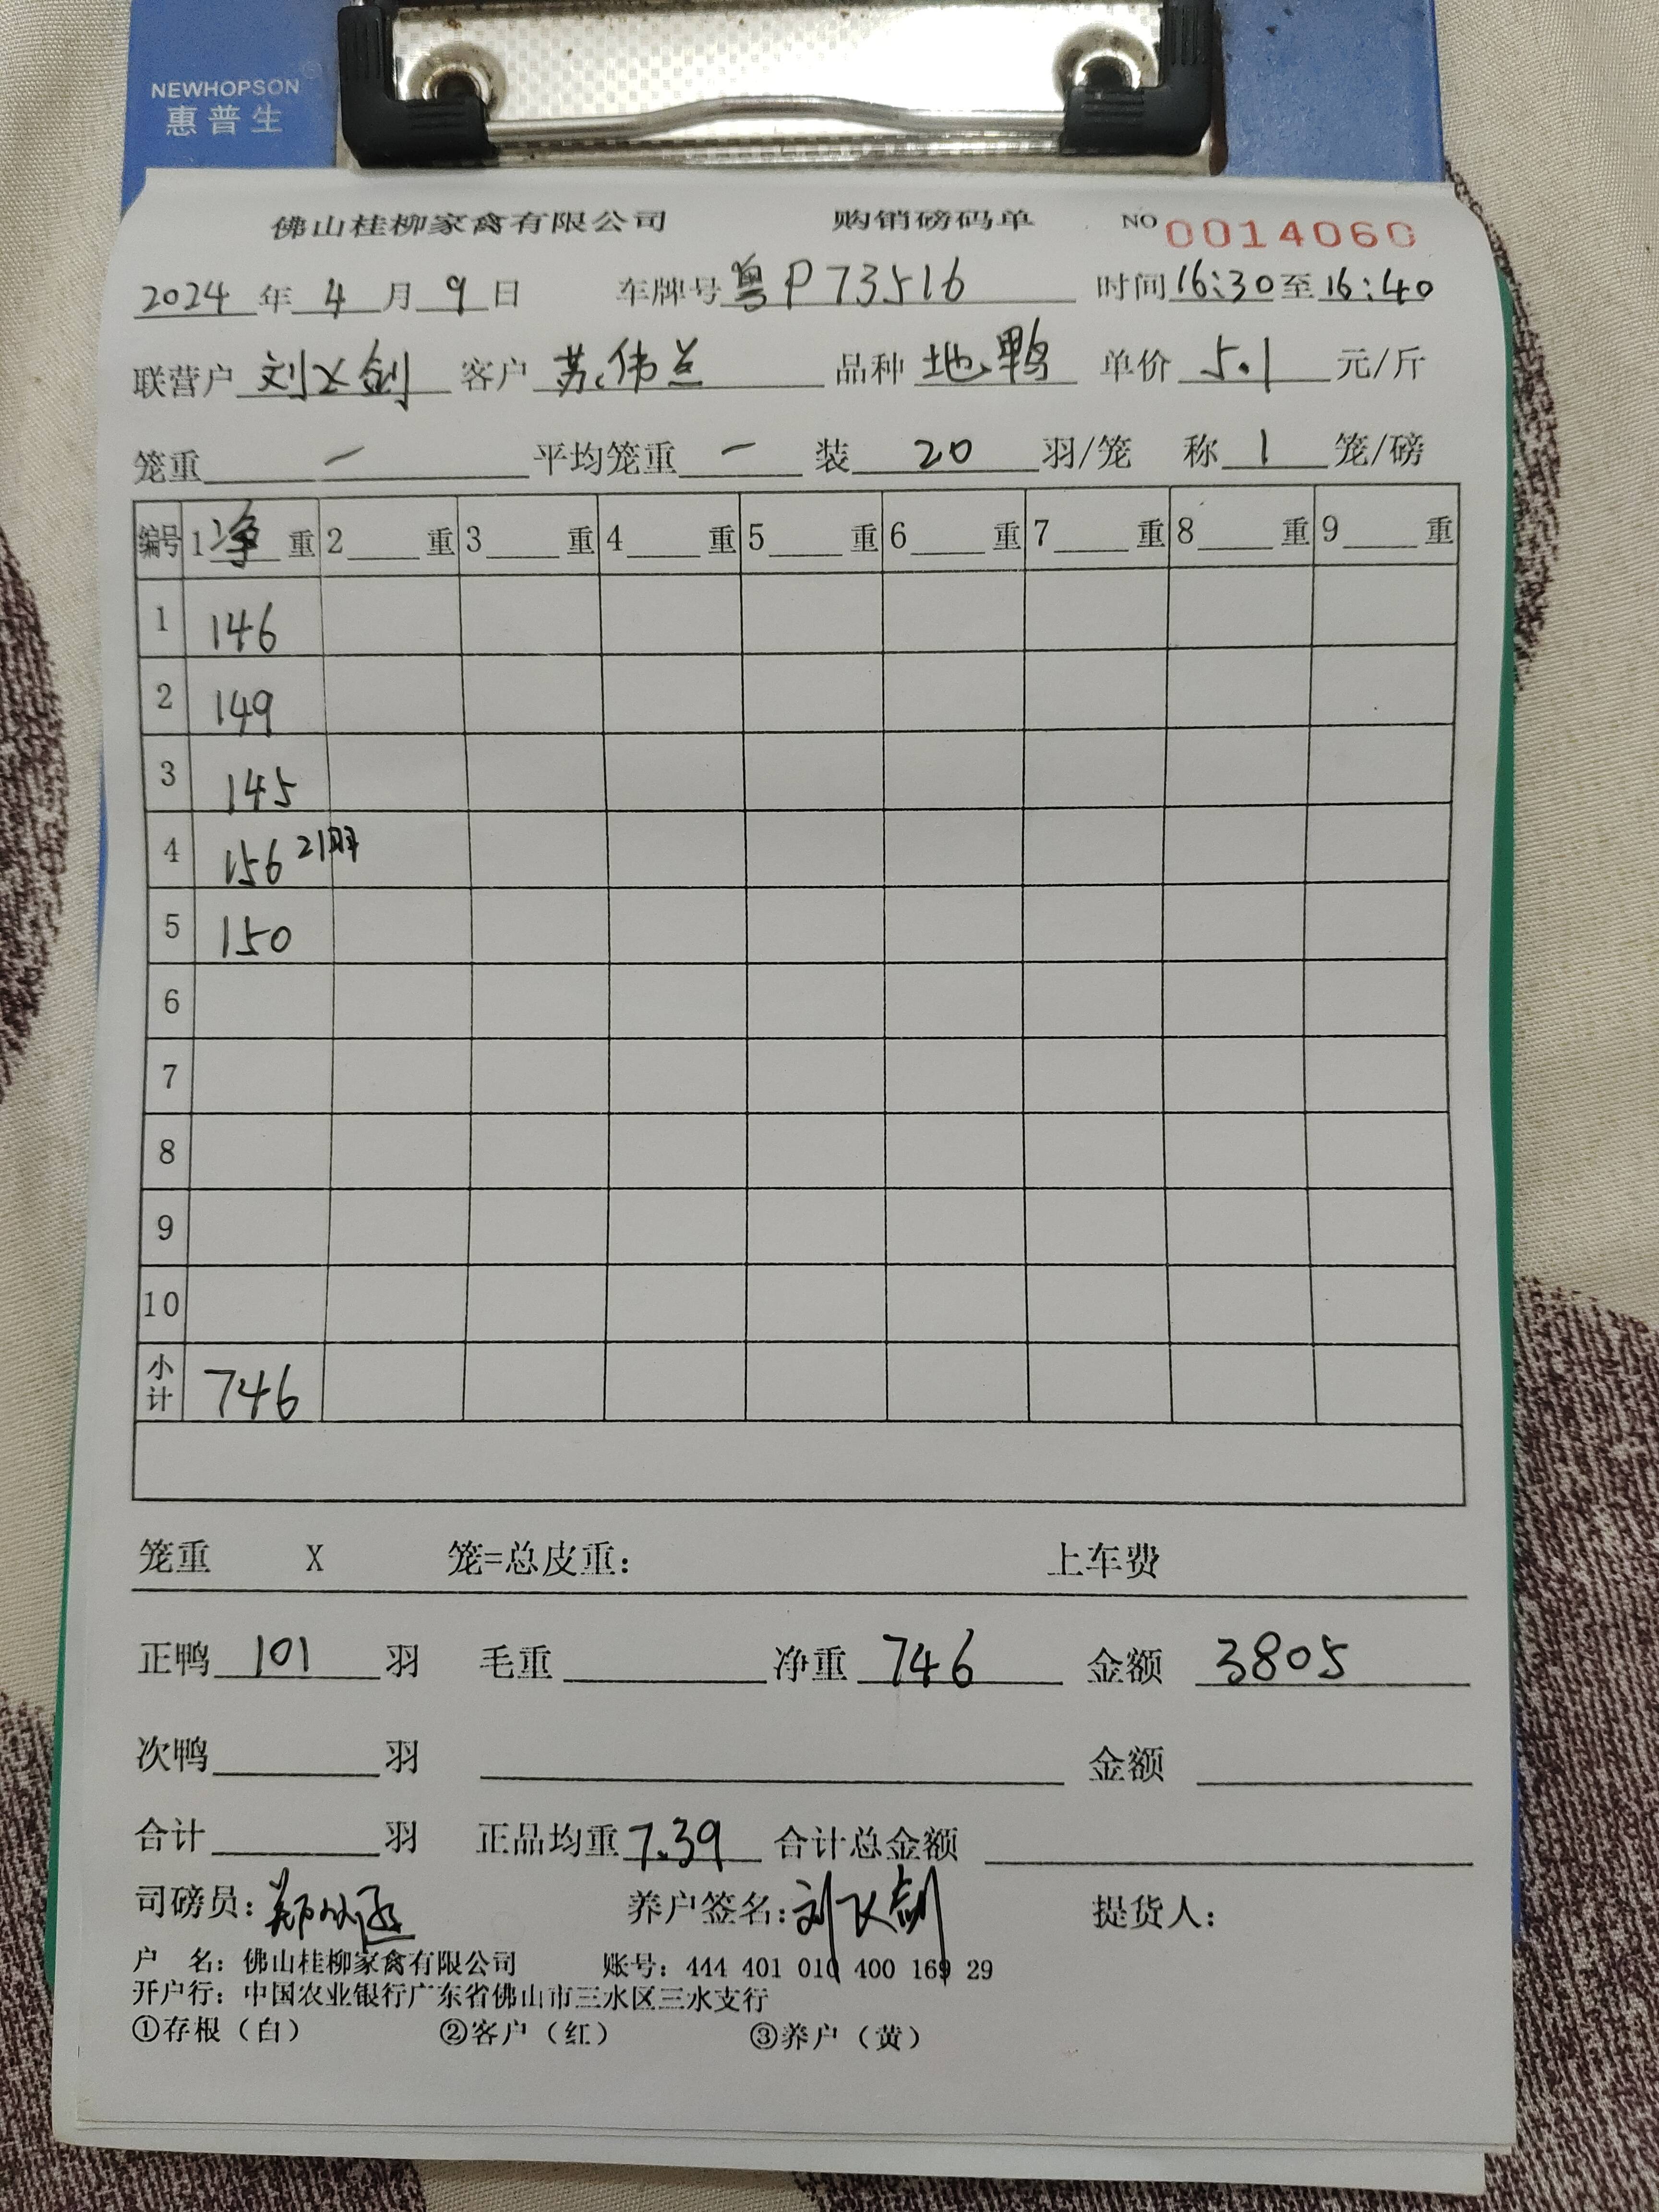 NEWHOPSON
惠普生
佛山桂柳家禽有限公司 购销磅码单 NO 0014060
2024 年 4 月 9 日 车牌号 粤P73516 时间 16:30 至 16:40
联营户 刘文剑 客户 苏伟兰 品种 地鸭 单价 5.1 元/斤
笼重 一 平均笼重 一 装 20 羽/笼 称 1 笼/磅
编号 1 净 重 2 重 3 重 4 重 5 重 6 重 7 重 8 重 9 重
1 146
2 149
3 145
4 156 21羽
5 150
6
7
8
9
10
小计 746
笼重 X 笼=总皮重: 上车费
正鸭 101 羽 毛重 净重 746 金额 3805
次鸭 羽 金额
合计 羽 正品均重 7.39 合计总金额
司磅员: 养户签名: 刘文剑 提货人:
户 名: 佛山桂柳家禽有限公司 账号: 444 401 010 400 169 29
开户行: 中国农业银行广东省佛山市三水区三水支行
①存根（白） ②客户（红） ③养户（黄）